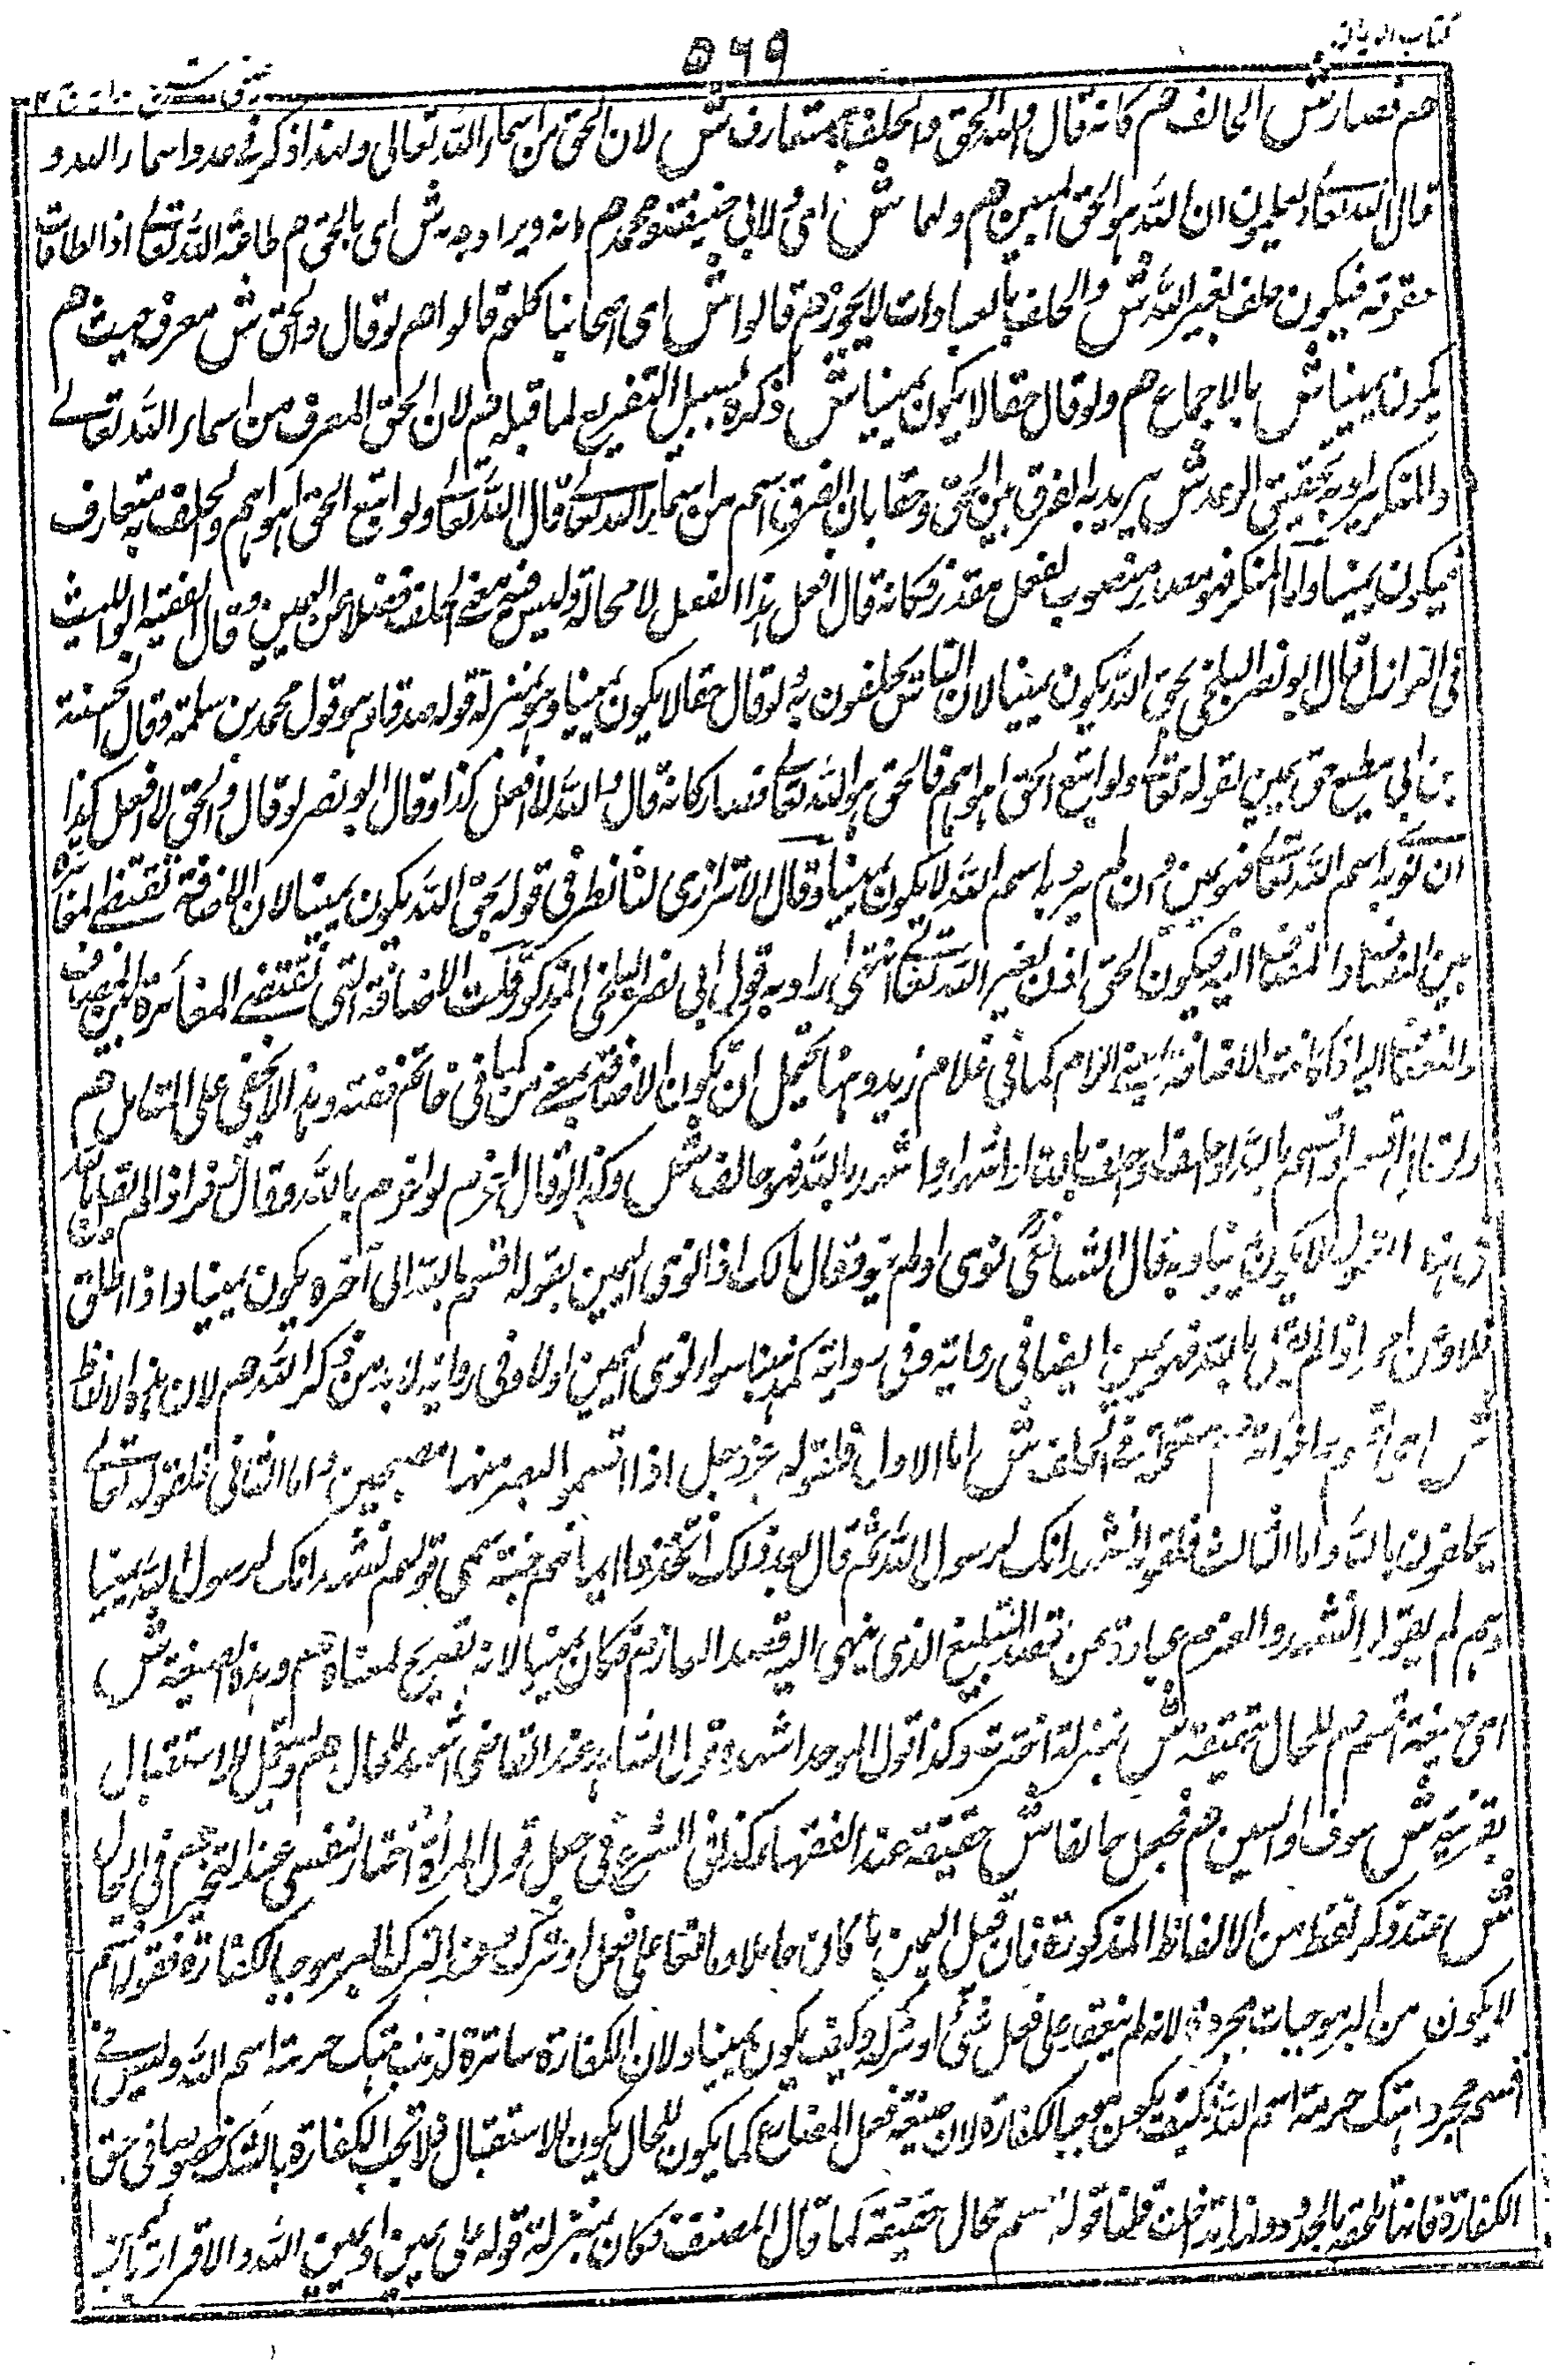 ٥٦٩
كتاب الايمان
هم فصار ش الحالف هم كانه قال والله الحق والحلف به متعارف ش لان الحق من اسماء الله تعالى ولهذا ذكر في عدد اسماء الله و
قال الله تعالى ويعلمون ان الله هو الحق المبين هم ولهما ش اى لابي حنيفة ومحمد هم انه ويراد به ش اى بالحق هم طاعة الله تعالى اذ الطاعات
حقوقه فيكون حلف بغير الله ش والحلف بالعبادات لا يجوز هم قالوا ش اى اصحابنا كلهم قالوا هم لو قال والحق ش معرف حيث هم
يكون يمينا ش بالاجماع هم ولو قال حقا لا يكون يمينا ش ذكره لسبيل التفريع لما قبله هم لان الحق المعرف من اسماء الله تعالى
والمنكر يراد به تحقيق الوعد ش يريد به الفرق بين الحق وحقا بان الفرق اسم من اسماء الله تعالى قال الله تعالى ولو اتبع الحق اهواءهم والحلف به متعارف
فيكون يمينا واما المنكر فهو مصدر منصوب بفعل مقدر فكانه قال افعل هذا الفعل لا محالة وليس فيه معنى الحلف فضلا عن اليمين وقال الفقيه ابو الليث
في النوازل قال ابو نصر البلخي بحق الله يكون يمينا لان الناس يحلفون به ولو قال حقا لا يكون يمينا وهو بمنزلة قوله صدقا وهو قول محمد بن سلمة وقال الحسن
بن ابي مطيع حق يمين لقوله تعالى ولو اتبع الحق اهواءهم فالحق هو الله تعالى فصار كانه قال والله لا افعل كذا وقال ابو نصر لو قال والحق لا افعل كذا
ان نوى به اسم الله تعالى فهو يمين وان لم يرد به اسم الله لا يكون يمينا وقال الاترازى لنا نظر في قوله بحق الله يكون يمينا لان الاضافة تقتضى المغايرة
بين المضاف والمضاف اليه فيكون الحق اذن لغير الله تعالى انتهى اراد به قول ابي نصر البلخى المذكور قلت الاضافة التى تقتضى المغايرة بين المضاف
والمضاف اليه اذا كانت الاضافة بمعنى اللام كما في غلام زيد وههنا يحتمل ان يكون الاضافة بمعنى من كما في خاتم فضة وهذا لا يخفى على المتامل هم
ولو قال اقسم او اقسم بالله او احلف او احلف بالله او اشهد او اشهد بالله فهو حالف ش وكذا لو قال اعزم او اعزم بالله وقال زفر اذا لم يقل بالله
في هذه لا يكون يمينا وبه قال الشافعى نوى او لم ينو وقال مالك اذا نوى اليمين بقوله اقسم بالله الى آخره يكون يمينا واذا اطلق
فلا وعن احمد اذا لم يقل بالله فهو يمين ايضا في رواية وفي رواية كمذهبنا سواء نوى اليمين اولا وفي رواية لا بد من ذكر الله هم لان هذه الالفاظ
ش هم مستعملة في الحلف ش اما الاول فلقوله عز وجل اذ اقسموا ليصرمنها مصبحين واما الثاني فلقوله تعالى
يحلفون بالله واما الثالث فلقوله نشهد انك لرسول الله ثم قال بعد ذلك اتخذوا ايمانهم جنة سمى قولهم نشهد انك لرسول الله يمينا
وهم لم يقولوا بالله والعزم عبارة عن قصد البليغ الذى ينهى اليه قصد العازم فكان يمينا لانه تصريح لمعناه هم وهذه الصيغة ش
اى صيغة اقسم هم للحال حقيقة ش بمنزلة اخترت وكذا قول الموحد اشهد وقول الشاهد عند القاضى اشهد للحال هم وتستعمل للاستقبال
بقرينة ش سوف او السين هم فجعل حالفا ش حقيقة عند الفقهاء كذا في الشرع في جعل قول المرأة اختار نفسي عند التخيير هم في الحال
ش عند ذكر لفظ من الالفاظ المذكورة فان قيل اليمين ما كان حاملا او مانعا على فعل او ترك وعند ترك البر موجبا للكفارة فقوله اقسم
لا يكون من البر موجبات مجردة لانه لم ينعقد على فعل شئ او تركه فكيف يكون يمينا ولان الكفارة ساترة لذنب هتك حرمة اسم الله وليس في
اقسم مجردا هتك حرمة اسم الله فكيف يكون موجبا للكفارة لان صيغة فعل المضارع كما يكون للحال يكون للاستقبال فلا تجب الكفارة بالشك خصوصا في حق
الكفارة فانها ملحقة بالحدود ولهذا تداخلت قلنا قوله اقسم للحال حقيقة كما قال المصنف فكان بمنزلة قوله على يمين او يمين الله والاقرار باليمين